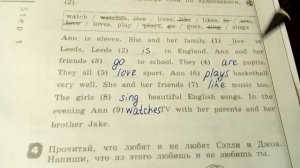 (2).
Step 1
watch / watches, live / lives, like / likes, is / are,
love / loves, play / plays, go / goes, sing / sings
Ann is eleven. She and her family (1) live in
Leeds. Leeds (2) is in England. Ann and her
friends (3) go to school. They (4) are pupils.
They all (5) love sport. Ann (6) plays basketball
very well. She and her friends (7) like music too.
The girls (8) sing beautiful English songs. In the
evening Ann (9) watches TV with her parents and her
brother Jake.
4 Прочитай, что любят и не любят Салли и Джон.
Напиши, что из этого любишь и не любишь ты.